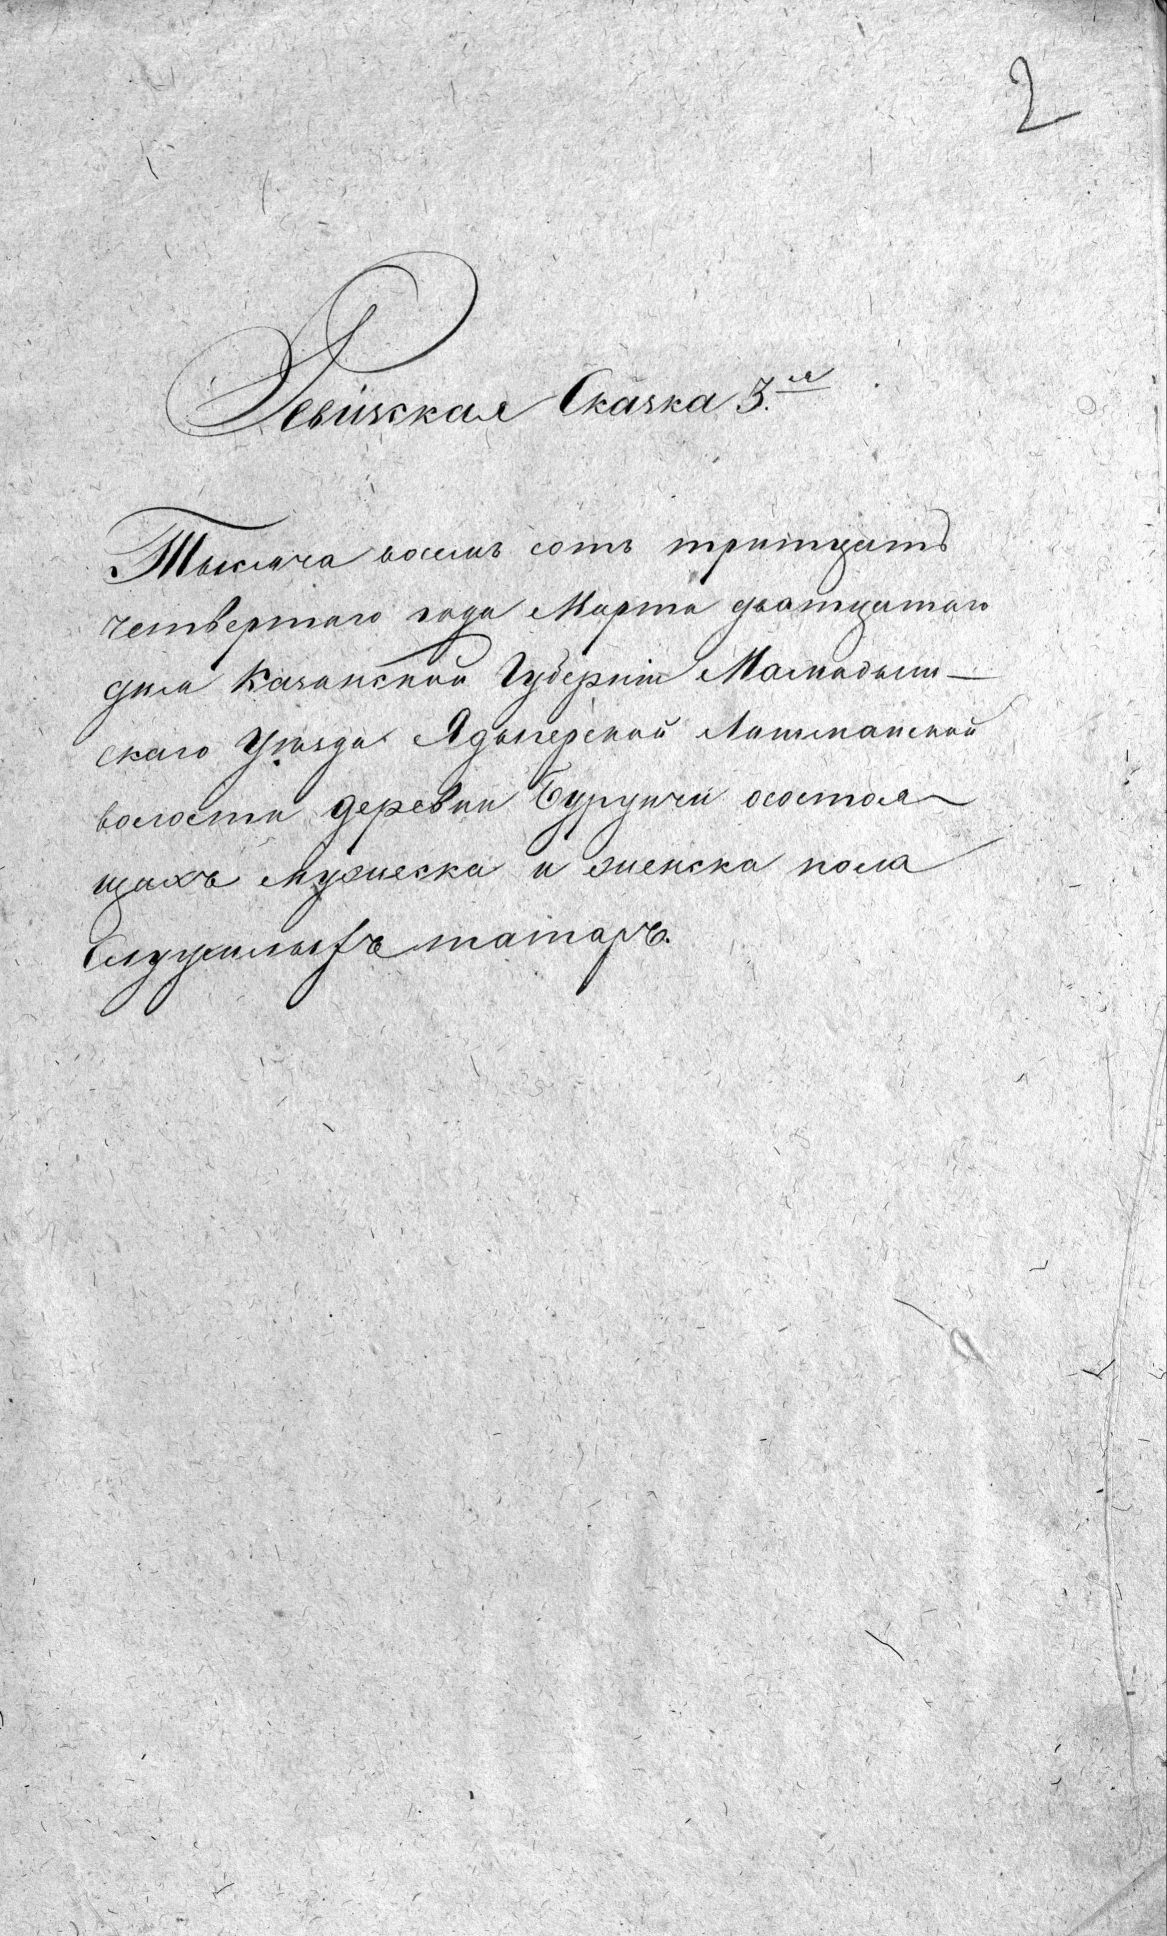 2
Ревизская Сказка 3.я
Тысяча восемь сотъ тритцать
четвертаго года Марта дватцатаго
дня Казанской Губернiи Мамадыш-
скаго Уезда Ядыгерской Лашманской
волости деревни Бурунчи осостоя-
щихъ мужеска и женска пола
Служилыхъ татаръ.